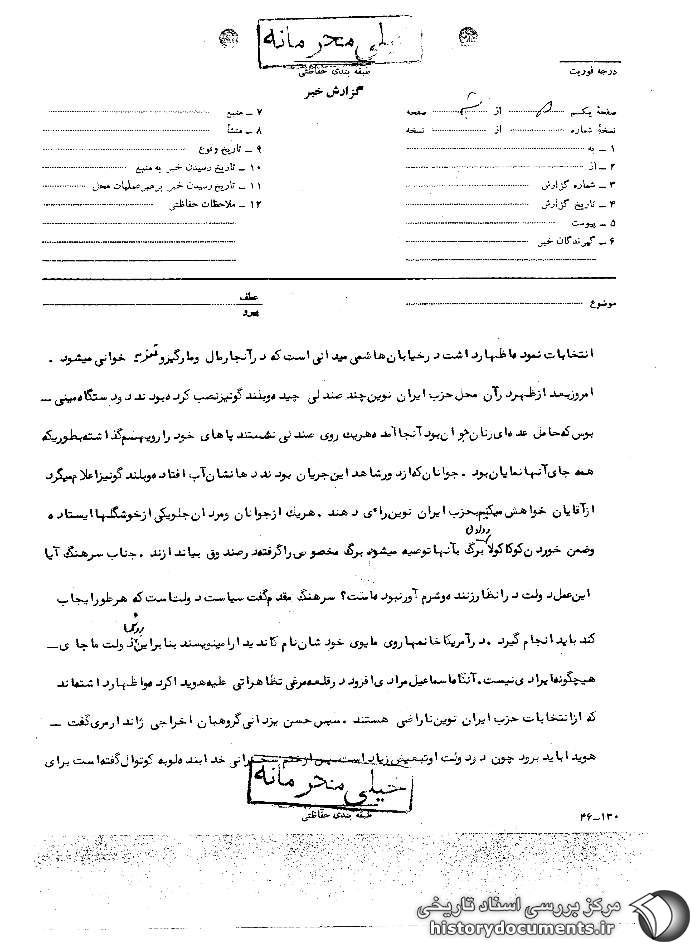 خیلی محرمانه
طبقه بندی حفاظتی
گزارش خبر
درجه فوریت
صفحهٔ یکم از صفحه
نسخهٔ شماره از نسخه
۱ ـ به
۲ ـ از
۳ ـ شماره گزارش
۴ ـ تاریخ گزارش
۵ ـ پیوست
۶ ـ گیرندگان خبر
۷ ـ منبع
۸ ـ منشأ
۹ ـ تاریخ وقوع
۱۰ ـ تاریخ رسیدن خبر به منبع
۱۱ ـ تاریخ رسیدن خبر برهبر عملیات محل
۱۲ ـ ملاحظات حفاظتی
موضوع
عطف
پیرو
انتخابات نموده اظهار داشت در خیابان هاشمی میدانی است که در آنجا رمال و مارگیر و خوانی میشود .
امروز بعد از ظهر در آن محل حزب ایران نوین چند صندلی چیده و بلندگو نیز نصب کرده بودند دو دستگاه مینی ـ
بوس که حامل عده ای زنان جوان بود آنجا آمده هر یک روی صندلی نشستند پاهای خود را رویهم گذاشته بطوریکه
همه جای آنها نمایان بود . جوانان که از دور شاهد این جریان بودند دهانشان آب افتاده و بلندگو نیز اعلام میکرد
از آقایان خواهش میکنیم بحزب ایران نوین رأی دهند . هر یک از جوانان و مردان جلو یکی از خوشگلها ایستاده
وضمن خوردن کوکاکولا برگ بآنها توصیه میشود برگ مخصوصی را گرفته در صندوق بیاندازند . جناب سرهنگ آیا
این عمل دولت در انظار زننده و شرم آور نبوده است؟ سرهنگ مقدم گفت سیاست دولت است که هر طور ایجاب
کند باید انجام گیرد . در آمریکا خانمها روی مایوی خودشان نام کاندیدا را مینویسند بنابراین دولت ما جای ـ
هیچگونه ایرادی نیست . آنگاه اسماعیل مرادی افزود در قلعه مرغی تظاهراتی علیه هویدا کرده و اظهار داشته اند
که از انتخابات حزب ایران نوین ناراضی هستند . سپس حسن یزدانی گروهبان اخراجی ژاندارمری گفت ـ
هویدا باید برود چون در دولت او تبعیض زیاد است سپس از ختم سخنرانی خدابنده لو به کوتوال گفته است برای
خیلی محرمانه
طبقه بندی حفاظتی
۴۶ـ۱۳۰
مرکز بررسی اسناد تاریخی
historydocuments.ir